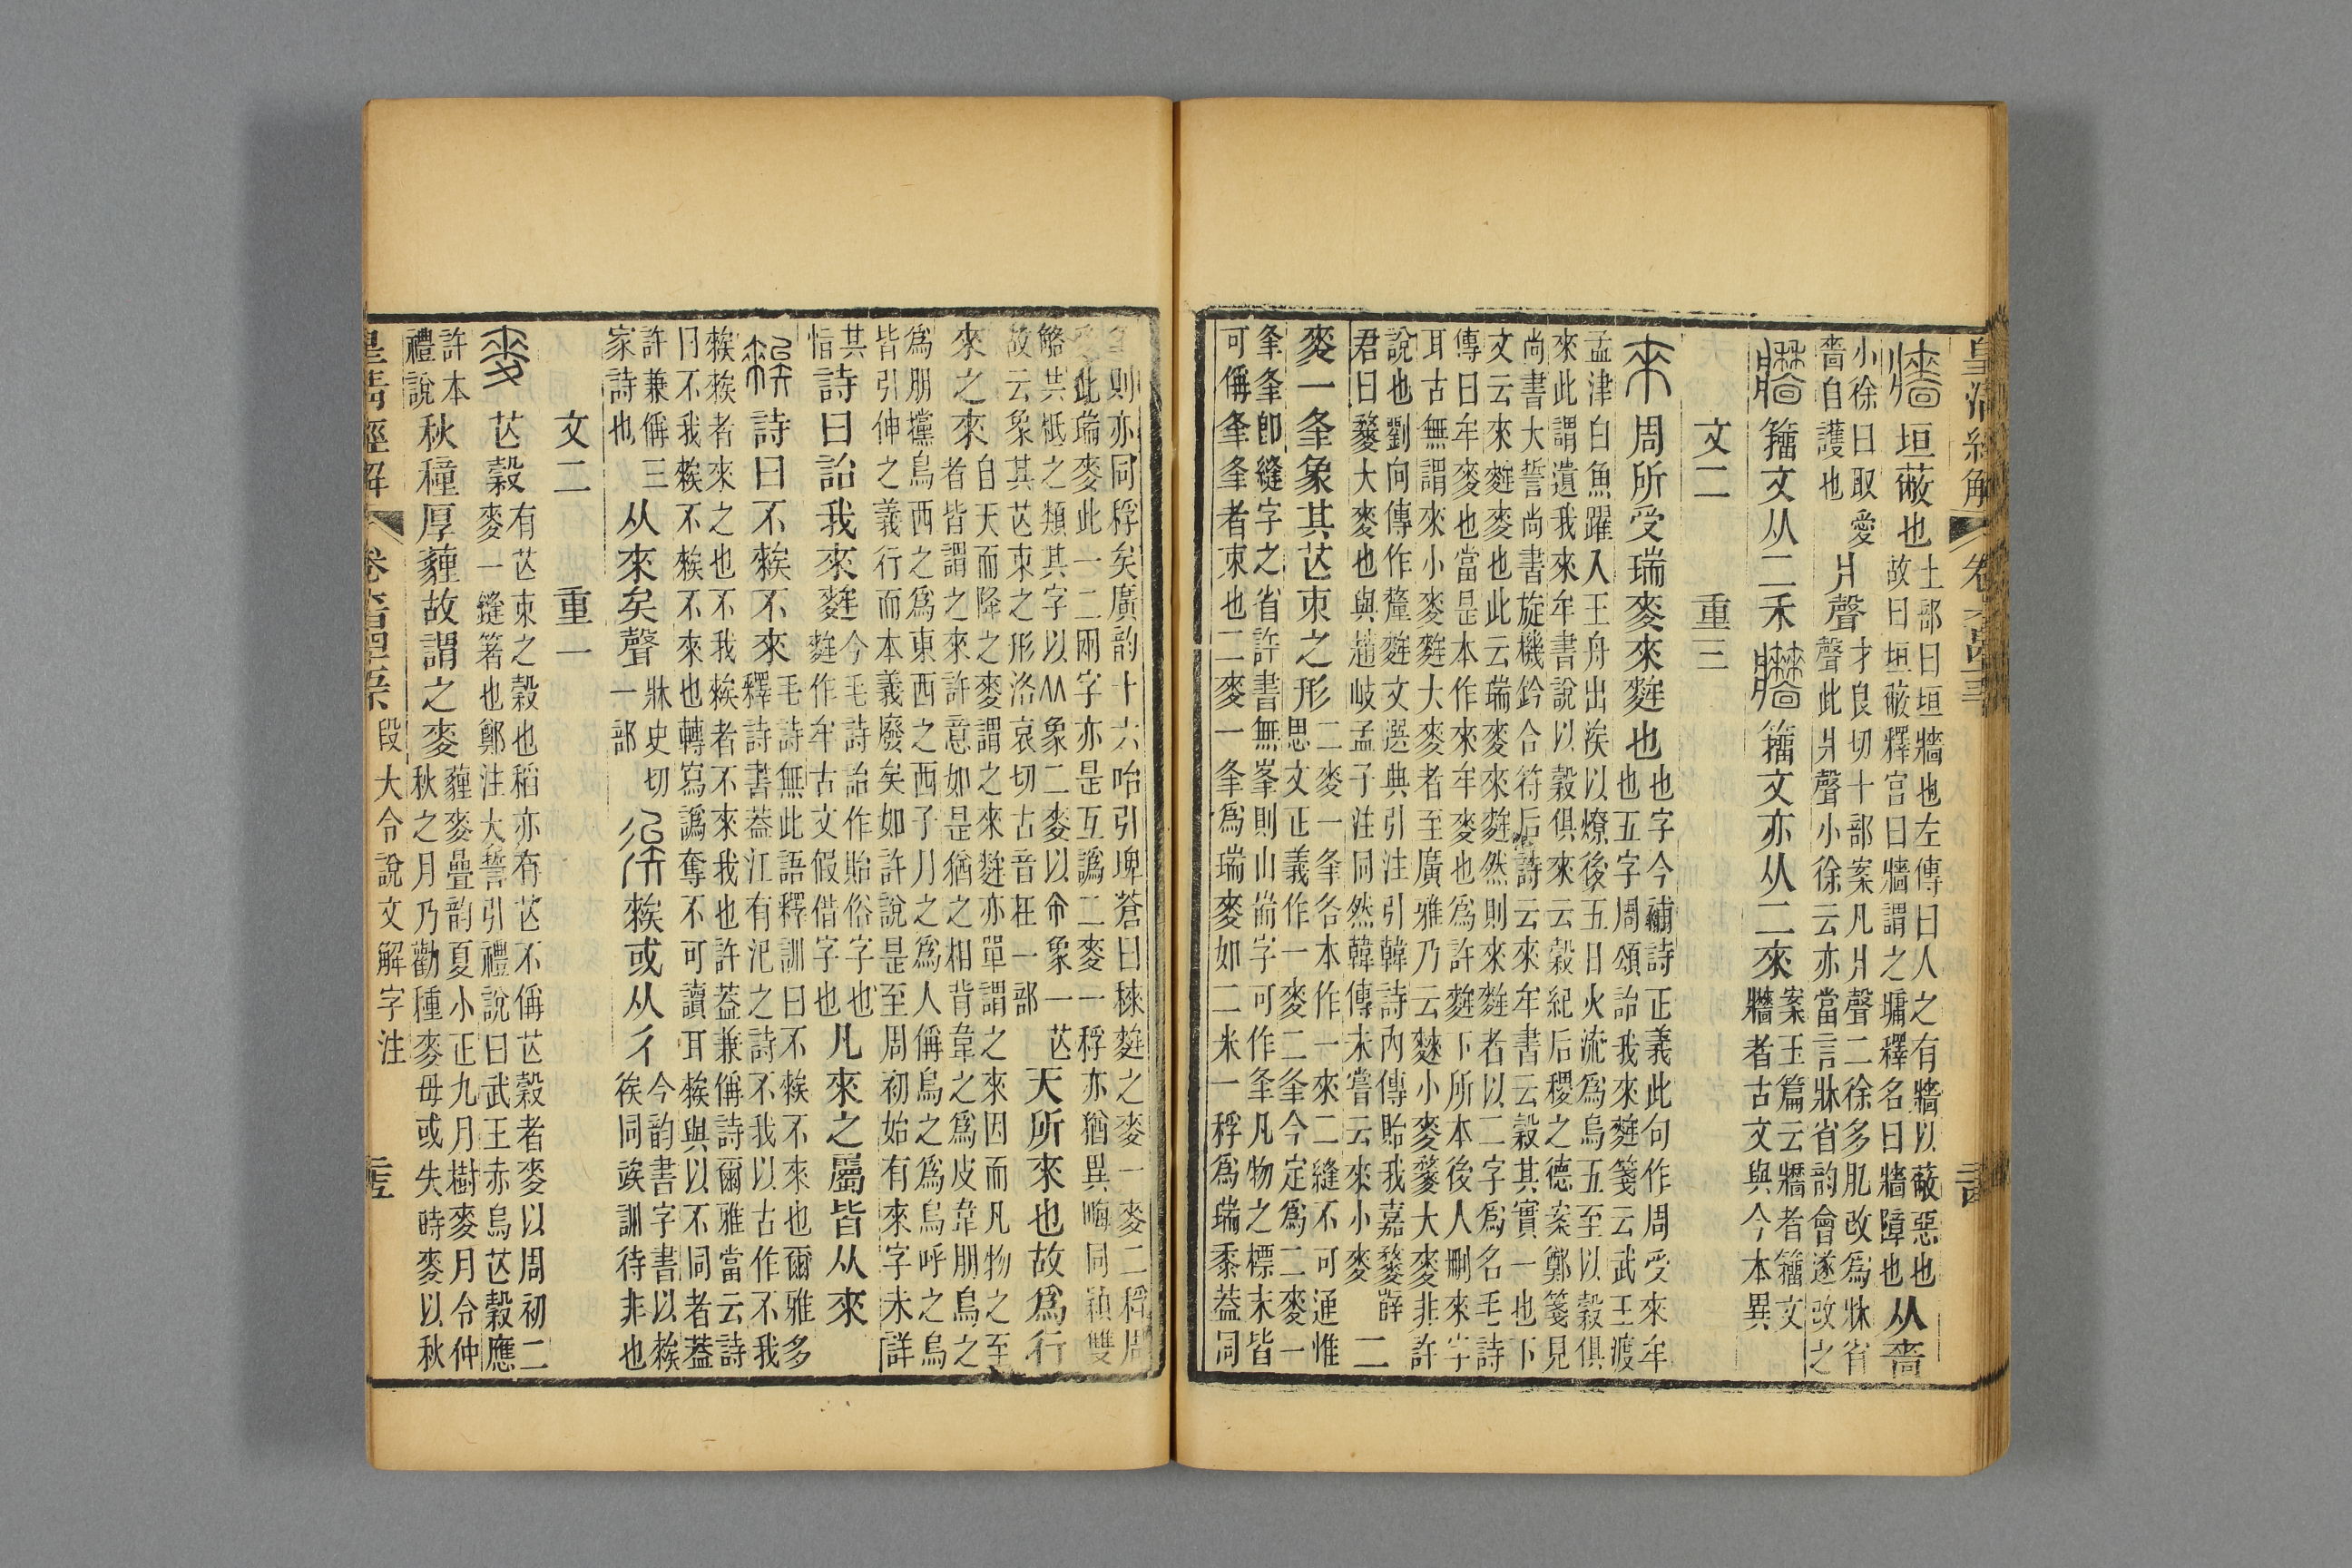 垣蔽也土部曰垣牆也左傳曰人之有牆以蔽惡也
故曰垣蔽釋宮曰牆謂之墉釋名曰牆障也从嗇
小徐曰取愛
嗇自護也爿聲才良切十部案凡爿聲二徐多肊改爲牀省
聲此爿聲小徐云亦當言牀省韵會遂改之
籒文从二禾籒文亦从二來案玉篇云牆者籒文
牆者古文與今本異
文二 重三
來周所受瑞麥來麰也也字今補詩正義此句作周受來牟
也五字周頌詒我來麰箋云武王渡
孟津白魚躍入王舟出涘以燎後五日火流爲烏五至以穀俱
來此謂遺我來牟書說以穀俱來云穀紀后稷之德案鄭箋見
尚書大誓尚書旋機鈐合符后詩云來牟書云穀其實一也下
文云來麰麥也此云瑞麥來麰然則來麰者以二字爲名毛詩
傳曰牟麥也當是本作來牟麥也爲許麰下所本後人刪來字
耳古無謂來小麥麰大麥者至廣雅乃云䅘小麥䴢大麥非許
說也劉向傳作釐麰文選典引注引韓詩內傳貽我嘉䴢薛
君曰䴢大麥也與趙岐孟子注同然韓傳未嘗云來小麥二
麥一夆象其芒朿之形二麥一夆各本作一來二縫不可通惟
思文正義作一麥二夆今定爲二麥一
夆夆卽縫字之省許書無峯則山耑字可作夆凡物之標末皆
可偁夆夆者朿也二麥一夆爲瑞麥如二米一稃爲瑞黍葢同
夆則亦同稃矣廣韵十六咍引埤蒼曰䅘麰之麥一麥二稃周
受此瑞麥此一二兩字亦是互譌二麥一稃亦猶異畮同穎雙
觡共柢之類其字以从象二麥以㐺象一芒
故云象其芒朿之形洛哀切古音在一部天所來也故爲行
來之來自天而降之麥謂之來麰亦單謂之來因而凡物之至
者皆謂之來許意如是猶之相背韋之爲皮韋朋鳥之
爲朋攩鳥西之爲東西之西子月之爲人偁烏之爲烏呼之烏
皆引伸之義行而本義廢矣如許說是至周初始有來字未詳
其
恉詩曰詒我來麰今毛詩詒作貽俗字也
麰作牟古文假借字也凡來之屬皆从來
詩曰不䅘不來毛詩無此語釋訓曰不䅘不來也爾雅多
釋詩書葢江有汜之詩不我以古作不我
䅘䅘者來之也不我䅘者不來我也許葢兼偁詩爾雅當云詩
曰不我䅘不䅘不來也轉寫譌奪不可讀耳䅘與以不同者葢
許兼偁三
家詩也从來矣聲牀史切
一部䅘或从彳今韵書字書以䅘
徯同竢訓待非也
文二 重一
芒穀有芒朿之穀也稻亦有芒不偁芒穀者麥以周初二
麥一縫箸也鄭注大誓引禮說曰武王赤烏芒穀應
許本
禮說秋穜厚薶故謂之麥薶麥疊韵夏小正九月樹麥月令仲
秋之月乃勸種麥毋或失時麥以秋
皇清經解
段大令說文解字注